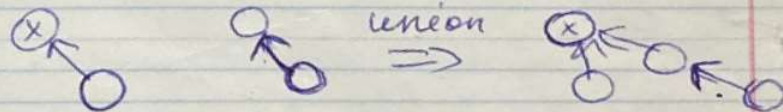 x union x
⇒